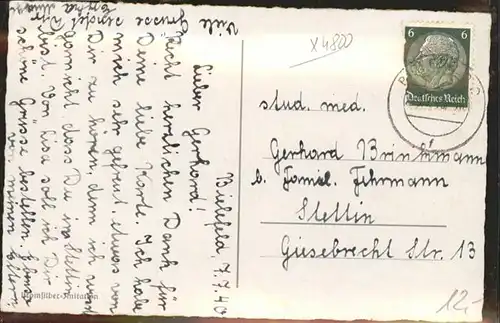 Bielefeld, 7.7.40
Lieber Gerhard!
Recht herzlichen Dank für
Deine liebe Karte. Ich habe
mich sehr gefreut, etwas von
Dir zu hören, denn ich wußte
garnicht, dass Du in Stettin
bist. Von Lisa soll ich Dir
schöne Grüsse bestellen. Ebenso
von meinen Eltern.
Viele Grüsse sendet Dir
x4800
6 6
Deutsches Reich
stud. med.
Gerhard Brinkmann
b. Famil. Fehrmann
Stettin
Giesebrecht Str. 13
12,-
Bromsilber-Imitation